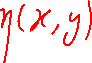 η(x,y)